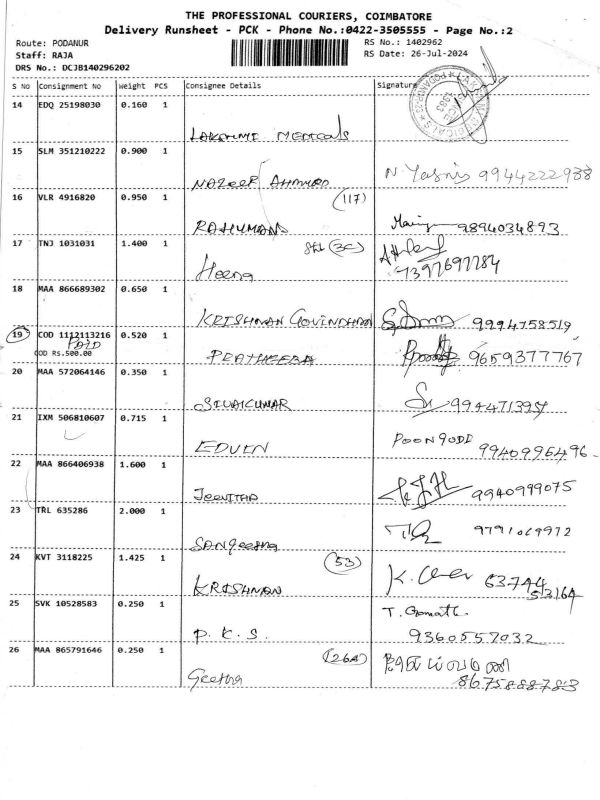 THE PROFESSIONAL COURIERS, COIMBATORE
Delivery Runsheet - PCK - Phone No.:0422-3505555 - Page No.:2
Route: PODANUR RS No.: 1402962
Staff: RAJA RS Date: 26-Jul-2024
DRS No.: DCJB140296202
S No Consignment No Weight PCS Consignee Details Signature
14 EDQ 25198030 0.160 1
LAKSHMI MEDICALS
15 SLM 351210222 0.900 1
NAZEER AHAMED N. Yasnis 9944222938
16 VLR 4916820 0.950 1 (117)
RAHUMAN 9894034893
17 TNJ 1031031 1.400 1 (3C)
Heena 7397697784
18 MAA 866689302 0.650 1
KRISHNAN GOVINDHAN 9994758519
19 COD 1112113216 0.520 1
PAID
COD Rs.500.00 PRATHEEBA 9659377767
20 MAA 572064146 0.350 1
SIVAKUMAR 994471395
21 IXM 506810607 0.715 1
EDVIN POONGODI 9940996496
22 MAA 866406938 1.600 1
JEEVITHA 9940999075
23 TRL 635286 2.000 1
SANGEETHA 9791069972
24 KVT 3118225 1.425 1 (53)
KRISHNAN 63744
53164
25 SVK 10528583 0.250 1 T. Gomathi
P. K. S. 9360557032
26 MAA 865791646 0.250 1 (26A)
Geetha 8675888783